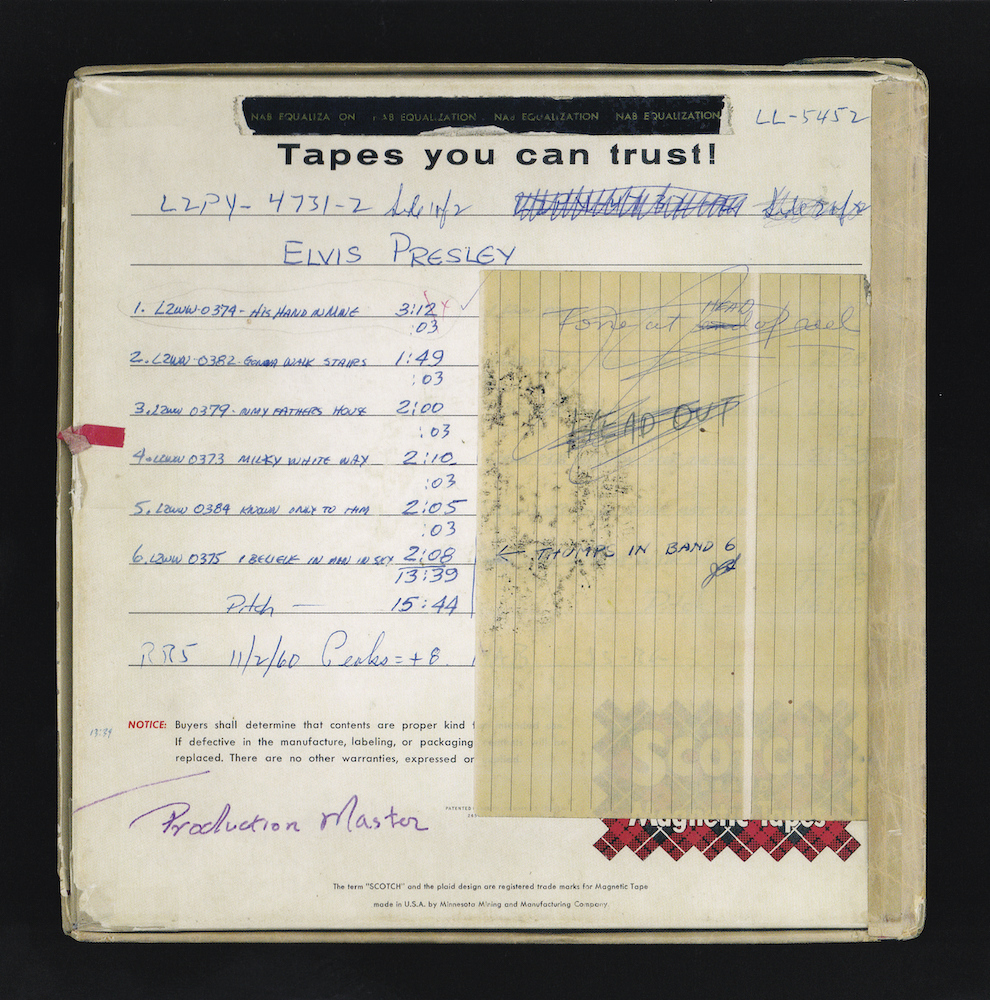 NAB EQUALIZA ON AB EQUALIZATION NAB EQUALIZATION NAB EQUALIZATION
LL-5452
Tapes you can trust!
L2PY-4731-2 Side 1 of 2 Side 2 of 2
ELVIS PRESLEY
1. L2WW-0374-HIS HAND IN MINE 3:12
:03
2. L2WW-0382-GONNA WALK STAIRS 1:49
:03
3. L2WW 0379-IN MY FATHERS HOUSE 2:00
:03
4. L2WW 0373 MILKY WHITE WAY 2:10
:03
5. L2WW 0384 KNOWN ONLY TO HIM 2:05
:03
6. L2WW 0375 I BELIEVE IN MAN IN SKY 2:08
13:39
Pitch — 15:44
RR5 11/2/60 Peaks=+8
Tone at HEAD end of reel
HEAD OUT
← THUMPS IN BAND 6
NOTICE: Buyers shall determine that contents are proper kind
If defective in the manufacture, labeling, or packaging
replaced. There are no other warranties, expressed or
13:39
Production Master
PATENTED
Scotch
Magnetic Tapes
The term "SCOTCH" and the plaid design are registered trade marks for Magnetic Tape
made in U.S.A. by Minnesota Mining and Manufacturing Company.